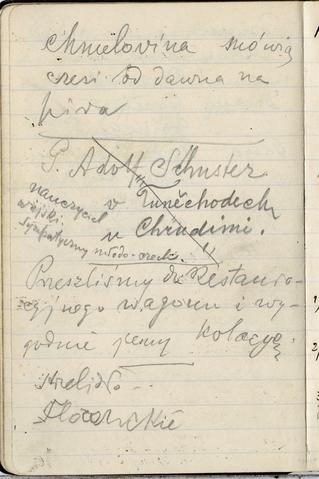 chmelovina mówią
czesi od dawna na
piva
P. Adolf Schuster
v Tuněchodech
u Chrudimi.
nauczyciel
wiejski
sympatyczny młodo-czech.
Przeszliśmy do Restaura-
cyjnego wagonu i wy-
godnie jemy kolacyę